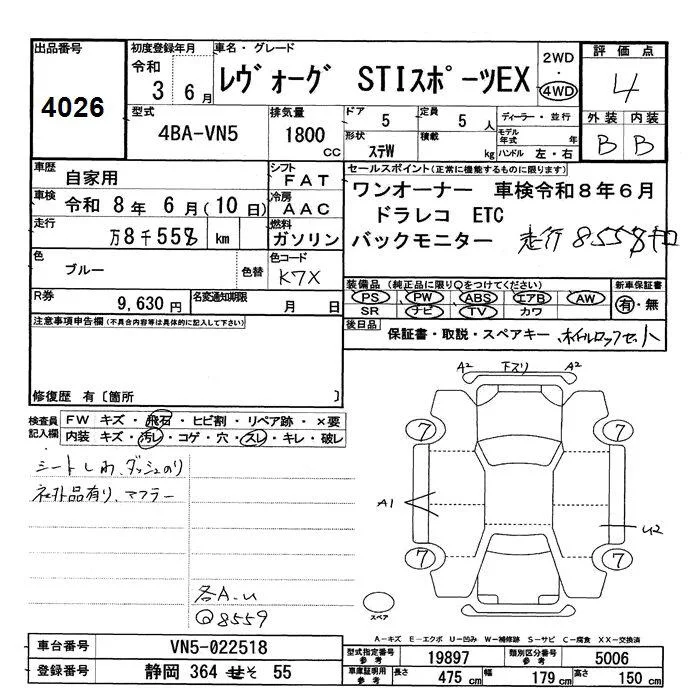 出品番号
4026
初度登録年月
令和
3 6月
車名・グレード
レヴォーグ STIスポーツEX
2WD
・
4WD
評価点
4
外装 内装
B B
型式
4BA-VN5
排気量
1800
cc
ドア
5
定員
5人
形状
ステW
積載
kg
ディーラー・並行
モデル
年式
年
ハンドル 左・右
車歴
自家用
シフト
FAT
車検
令和 8年 6月(10日)
冷房
AAC
走行
万8千558
km
燃料
ガソリン
色
ブルー
色替
色コード
K7X
R券
9,630円
名変通知期限
月 日
セールスポイント(正常に機能するものに限ります)
ワンオーナー 車検令和8年6月
ドラレコ ETC
バックモニター 走行8.558キロ
装備品(純正品に限り○をつけてください)
PS PW ABS エアB AW
SR ナビ TV カワ
新車保証書
有・無
後日品
保証書・取説・スペアキー ホイルロックセット
注意事項申告欄(不具合内容等は具体的に記入して下さい)
修復歴 有〔箇所 〕
検査員
記入欄
FW キズ・飛石・ヒビ割・リペア跡・×要
内装 キズ・汚レ・コゲ・穴・スレ・キレ・破レ
シートしわ、ダッシュのり
社外品有り、マフラー
各A.u
Q8559
A2 下スリ A2
7 7
A1
U2
7 7
スペア
A-キズ E-エクボ U-凹み W-補修跡 S-サビ C-腐食 XX-交換済
車台番号
VN5-022518
登録番号
静岡 364 せそ 55
型式指定番号
参考
19897
類別区分番号
参考
5006
車庫証明用
参考
長さ
475 cm
幅
179 cm
高さ
150 cm